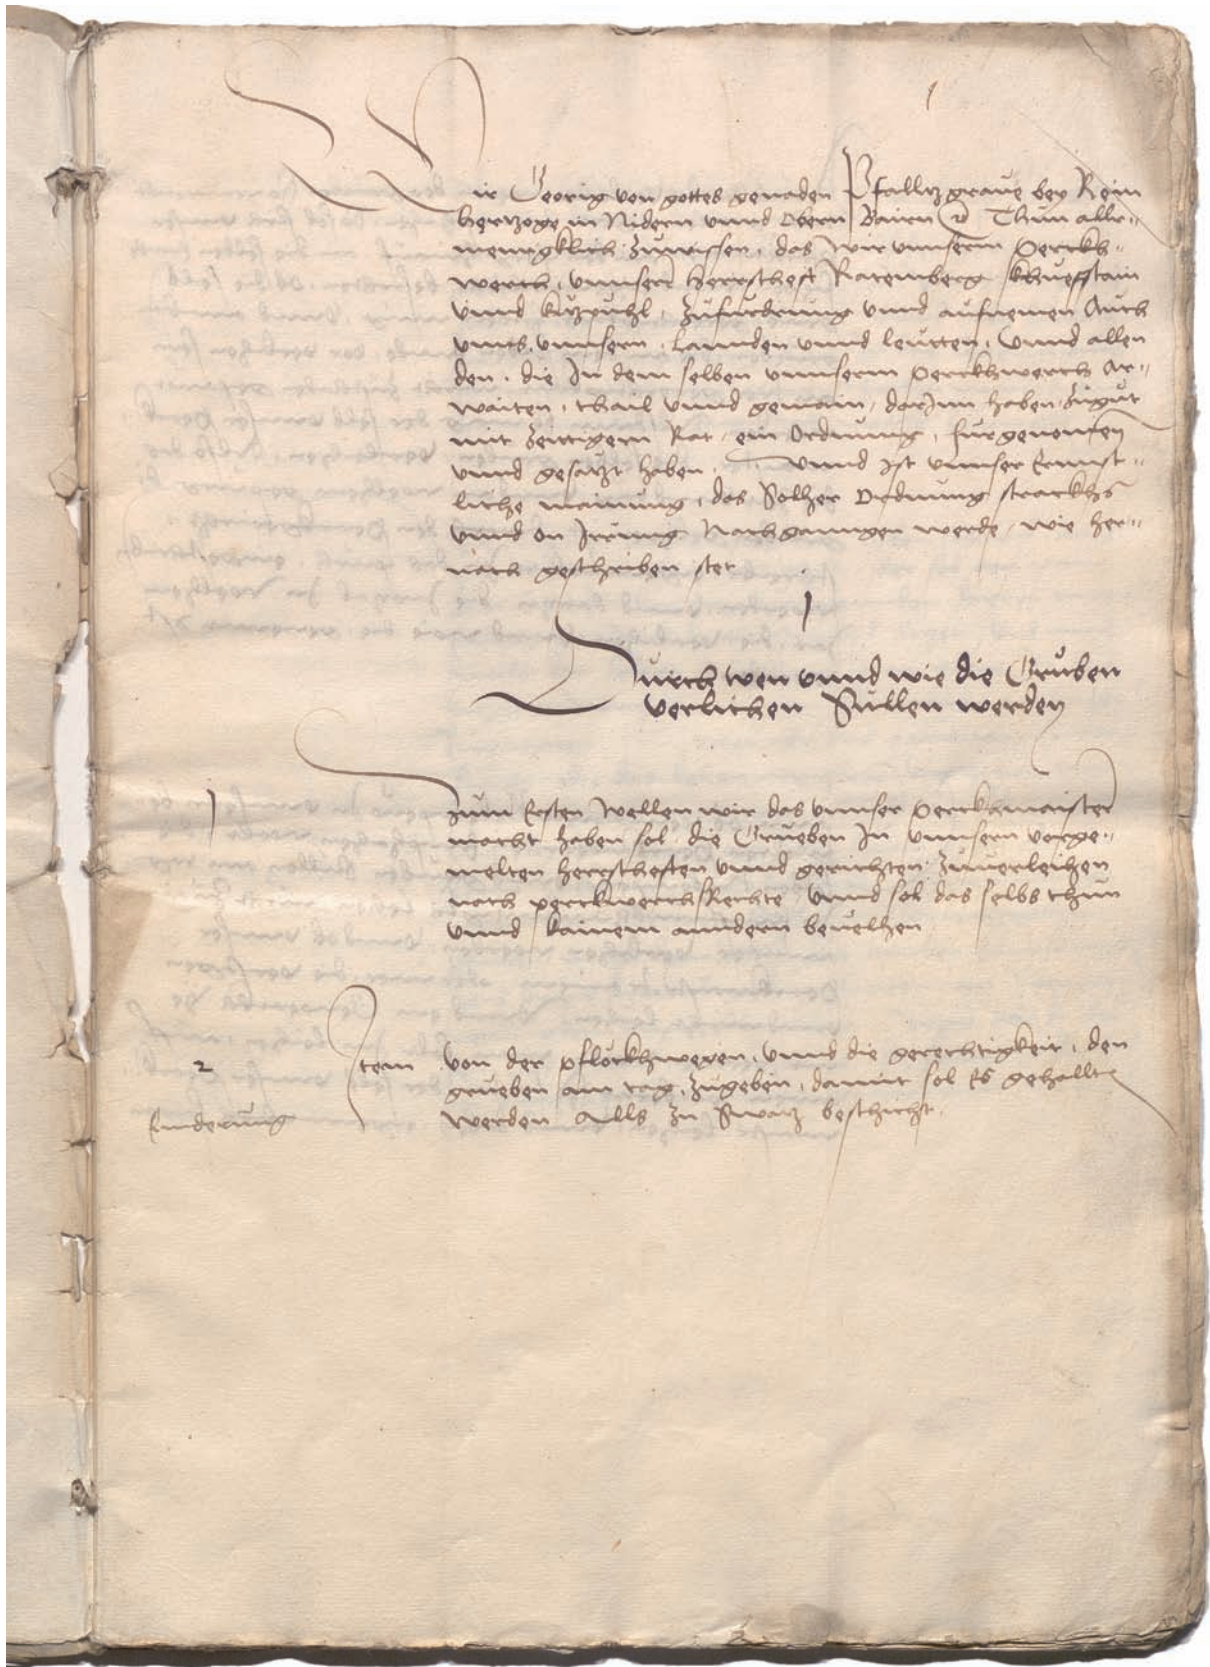 1
Wir Georig von gottes genaden Pfalltzgraue bey Rein
hertzoge in Nidern vnnd Obern Bairen &c Thun aller-
menigklich zuwissen, das wir vnnserm Perckh-
werch, vnnserr herrscheft Ratemberg khuefstain
vnnd kitzpuhl, zufurdrung vnnd aufnemen Auch
vnns, vnnsern, Lannden vnnd leutten, Vnnd allen
den, die In dem selben vnnserm Perckhwerch Ar-
waiten, thail vnnd gemain, darInn haben, zugut
mit zeittigem Rat, ein Ordnung, furgenomen
vnnd gesatzt haben, Vnnd ist vnnser Ernnst-
liche mainung, das Solher Ordnung strackhs
vnnd on Irrung Nachganngen werde, wie her-
nach geschriben stet
1
Durch wen vnnd wie die Gruben
verlichen Sullen werden
1
Zum Ersten Wellen wir das vnnser Perckmaister
macht haben sol, die Grueben In vnnsern vorge-
melten herrscheften vnnd gerichten zuuerleihen
nach perckwerchsRechte, vnnd sol das selbs thun
vnnd kainem anndern beuelhen
2
Item von der pflockh wegen, vnnd die gerechtigkeit, den
grueben am tag, zugeben, damit sol Es gehallten
werden Alls zu Swatz beschicht.
Enderung